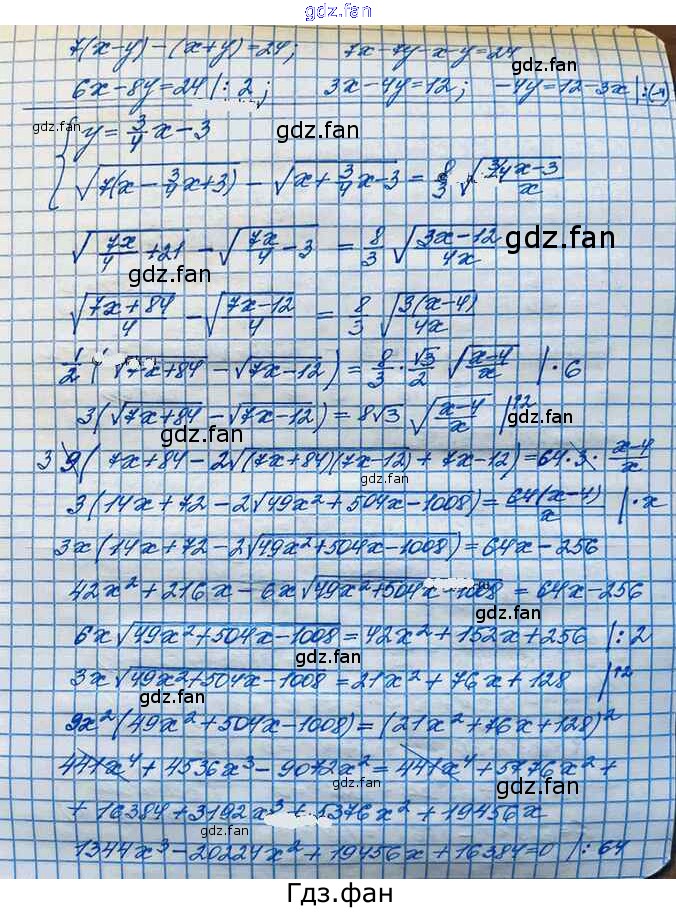 гдз.фан
7(x-y)-(x+y)=24; 7x-7y-x-y=24
6x-8y=24 |:2; 3x-4y=12; -4y=12-3x |:(-4)
gdz.fan
{ y=3/4 x-3 gdz.fan
√(7(x-3/4 x+3)) - √(x+3/4 x-3) = 8/3 √((3/4 x-3)/x)
√(7x/4+21) - √(7x/4-3) = 8/3 √((3x-12)/4x) gdz.fan
gdz.fan
√((7x+84)/4) - √((7x-12)/4) = 8/3 √(3(x-4)/4x)
gdz.fan
1/2 (√(7x+84) - √(7x-12)) = 8/3 · √3/2 √((x-4)/x) |·6
3(√(7x+84) - √(7x-12)) = 8√3 √((x-4)/x) |^2
gdz.fan
3 9(7x+84-2√((7x+84)(7x-12))+7x-12)=64·3·(x-4)/x
gdz.fan
3(14x+72-2√(49x²+504x-1008))=64(x-4)/x |·x
gdz.fan
3x(14x+72-2√(49x²+504x-1008))=64x-256
42x²+216x-6x√(49x²+504x-1008)=64x-256
gdz.fan
6x√(49x²+504x-1008)=42x²+152x+256 |:2
gdz.fan
3x√(49x²+504x-1008)=21x²+76x+128 |^2
gdz.fan
9x²(49x²+504x-1008)=(21x²+76x+128)²
gdz.fan
441x⁴+4536x³-9072x²=441x⁴+5776x²+
gdz.fan
+16384+3192x³+5376x²+19456x
gdz.fan
1344x³-20224x²+19456x+16384=0 |:64
gdz.fan
Гдз.фан